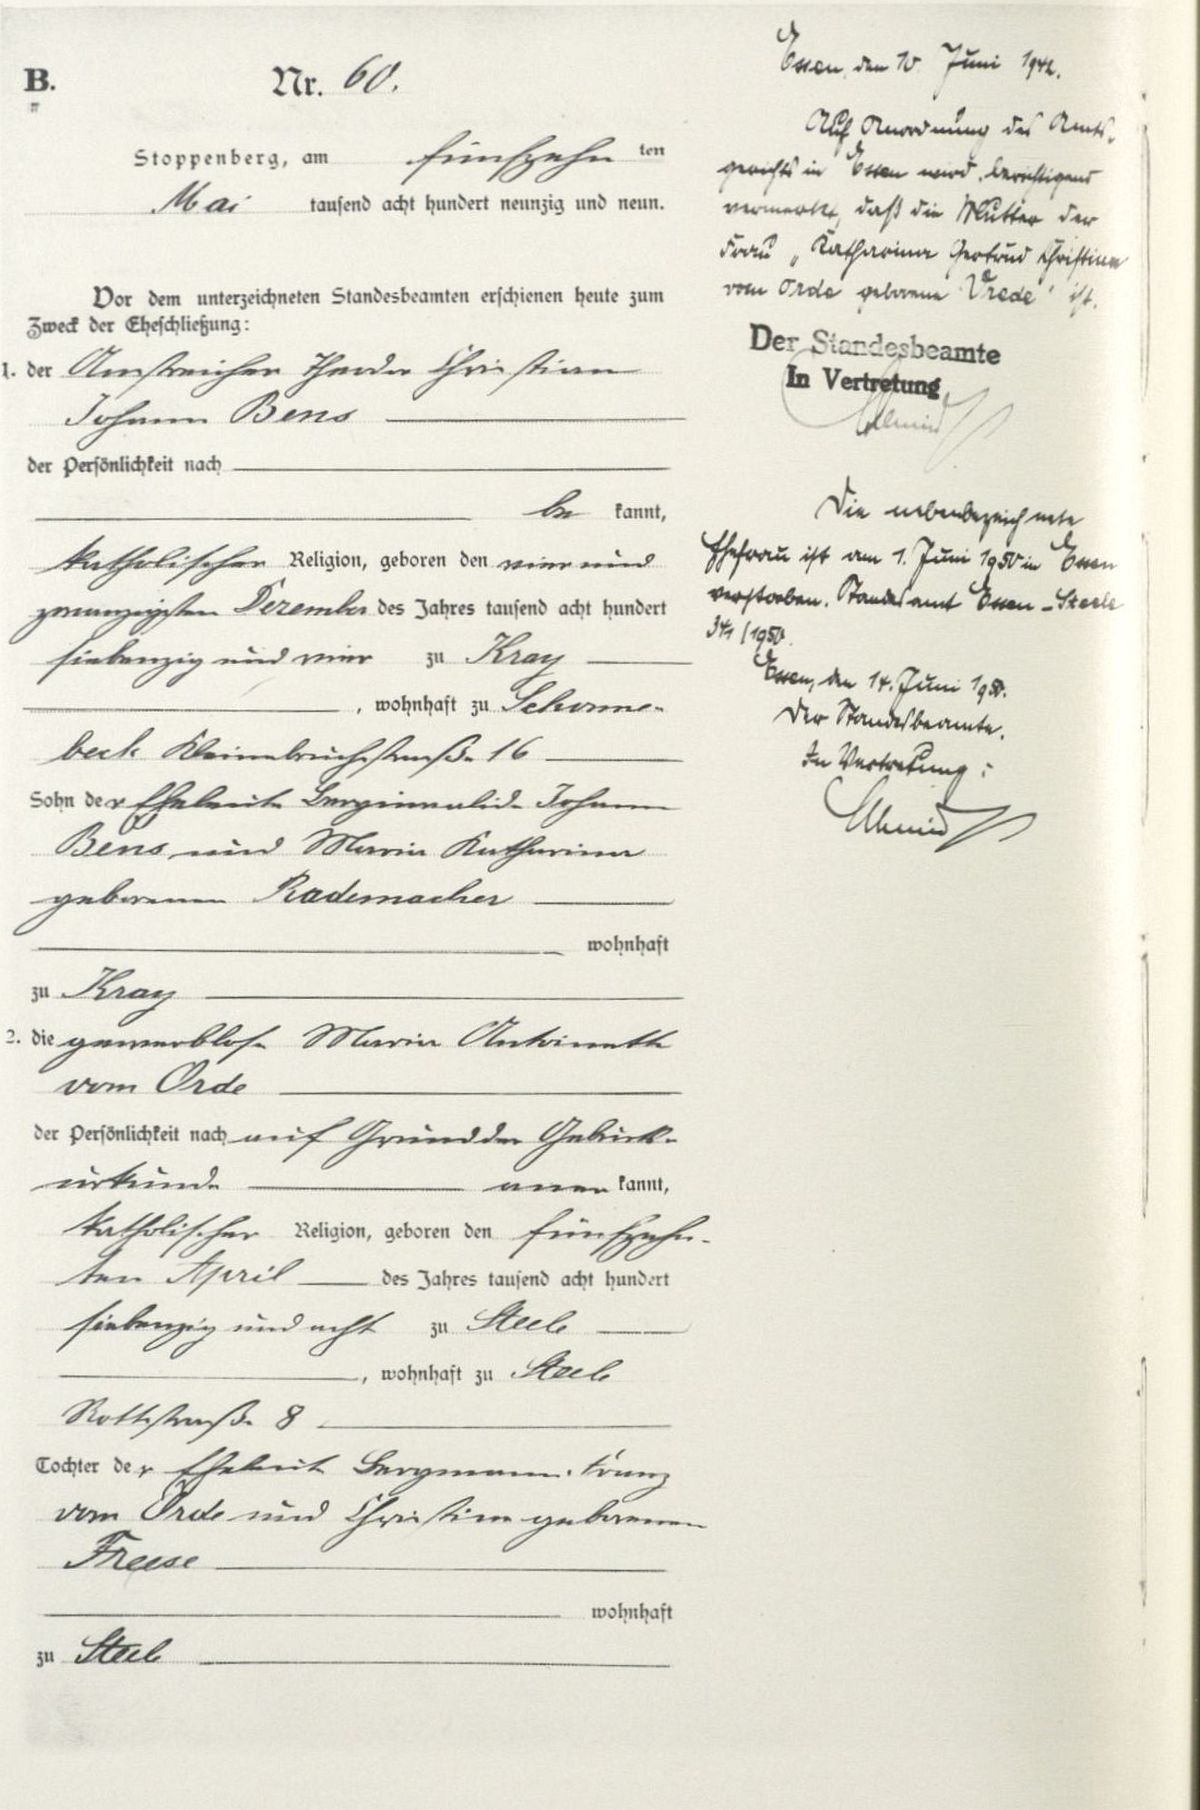 B.
Nr. 60.
Stoppenberg, am fünfzehn ten
Mai tausend acht hundert neunzig und neun.
Vor dem unterzeichneten Standesbeamten erschienen heute zum
Zweck der Eheschließung:
1. der Anstreicher Theodor Christian
Johann Bens
der Persönlichkeit nach
be kannt,
katholischer Religion, geboren den vier und
zwanzigsten Dezember des Jahres tausend acht hundert
siebenzig und vier zu Kray
, wohnhaft zu Schonne-
beck Kleinebruchstraße 16
Sohn der Eheleute Berginvalide Johann
Bens und Maria Katharina
geborenen Rademacher
wohnhaft
zu Kray
2. die gewerblose Maria Antoinette
vom Orde
der Persönlichkeit nach auf Grund der Geburts-
urkunde aner kannt,
katholischer Religion, geboren den fünfzehn-
ten April des Jahres tausend acht hundert
siebenzig und acht zu Steele
, wohnhaft zu Steele
Rottstraße 8
Tochter der Eheleute Bergmann Franz
vom Orde und Christine geborenen
Freese
wohnhaft
zu Steele
Essen, den 10. Juni 1942.
Auf Anordnung des Amts-
gerichts in Essen wird berichtigend
vermerkt, daß die Mutter der
Frau „Katharina Gertrud Christine
vom Orde geborene Vrede" ist.
Der Standesbeamte
In Vertretung
Die nebenbezeichnete
Ehefrau ist am 1. Juni 1950 in Essen
verstorben. Standesamt Essen-Steele
341/1950.
Essen, den 14. Juni 1950.
Der Standesbeamte.
In Vertretung: